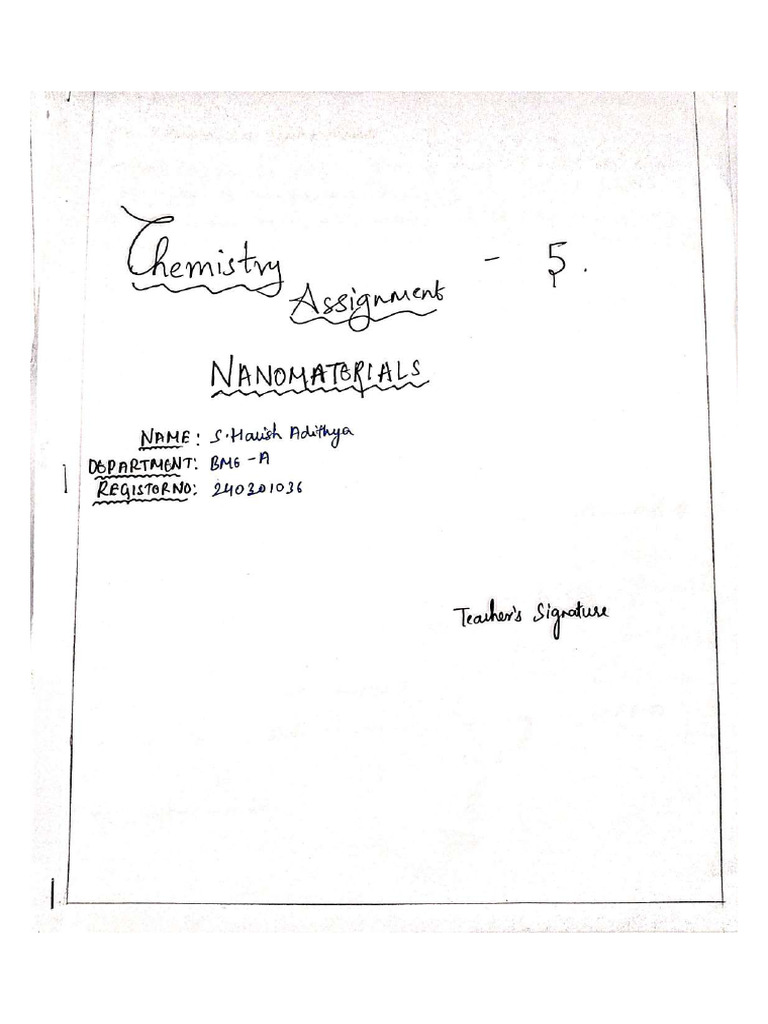 Chemistry
Assignment - 5.
NANOMATERIALS
NAME: S. Harish Adithya
DEPARTMENT: BME - A
REGISTOR NO: 240301036
Teacher's Signature